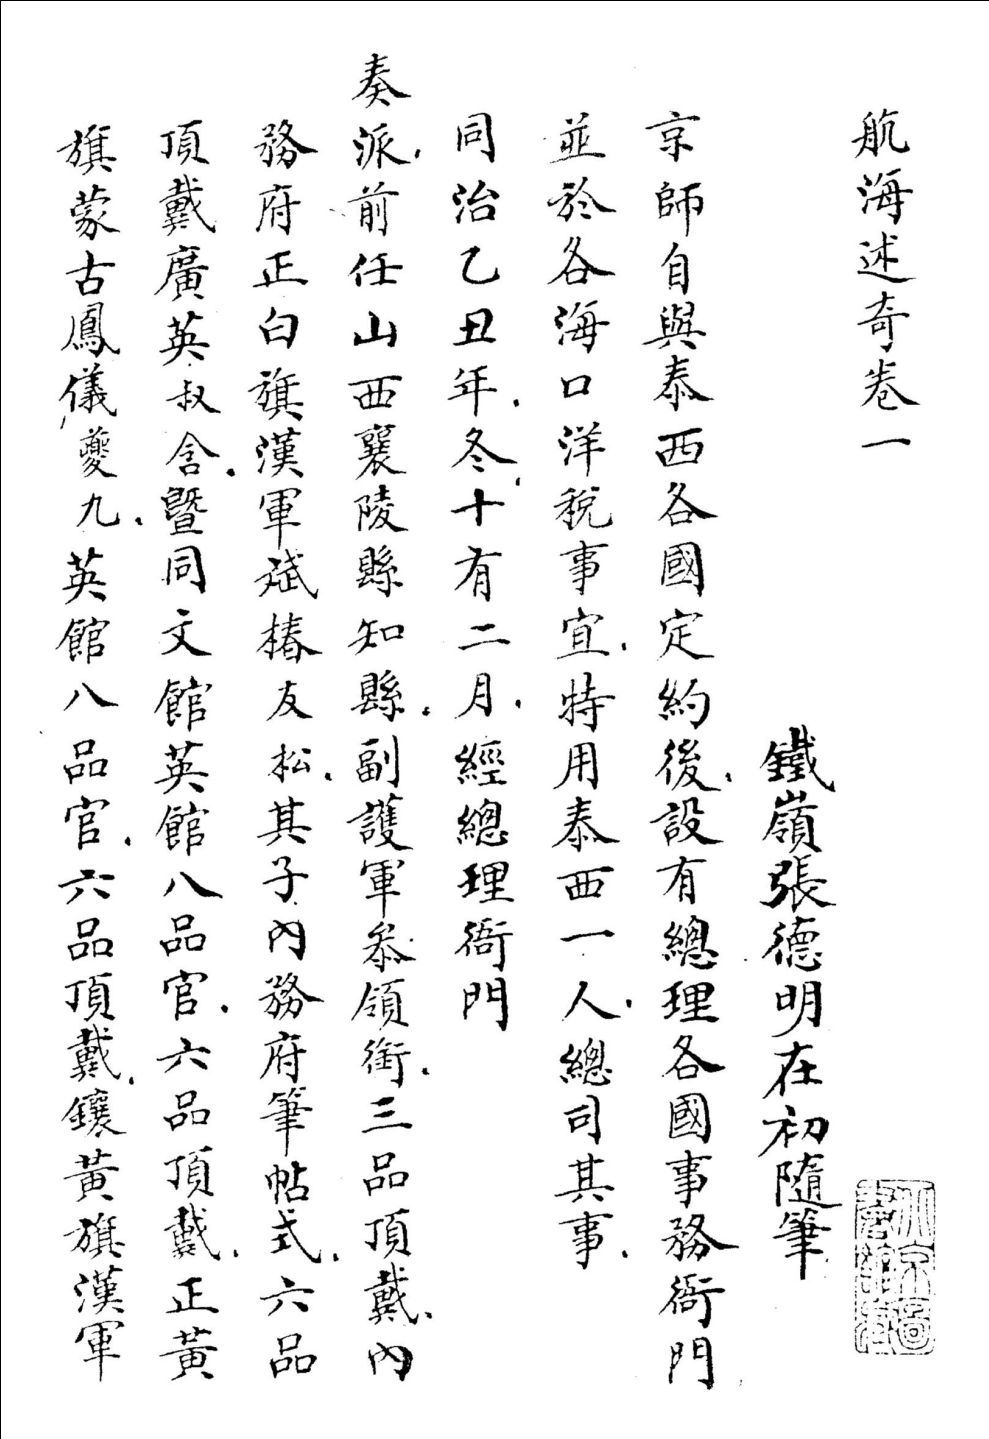 航海述奇卷一
鐵嶺張德明在初隨筆
京師自與泰西各國定約後、設有總理各國事務衙門
並於各海口洋稅事宜、特用泰西一人、總司其事、
同治乙丑年、冬、十有二月、經總理衙門
奏派、前任山西襄陵縣知縣、副護軍參領銜、三品頂戴、內
務府正白旗漢軍斌椿友松、其子內務府筆帖式、六品
頂戴廣英叔含、暨同文館英館八品官、六品頂戴、正黃
旗蒙古鳳儀夔九、英館八品官、六品頂戴、鑲黃旗漢軍
北京圖書館藏